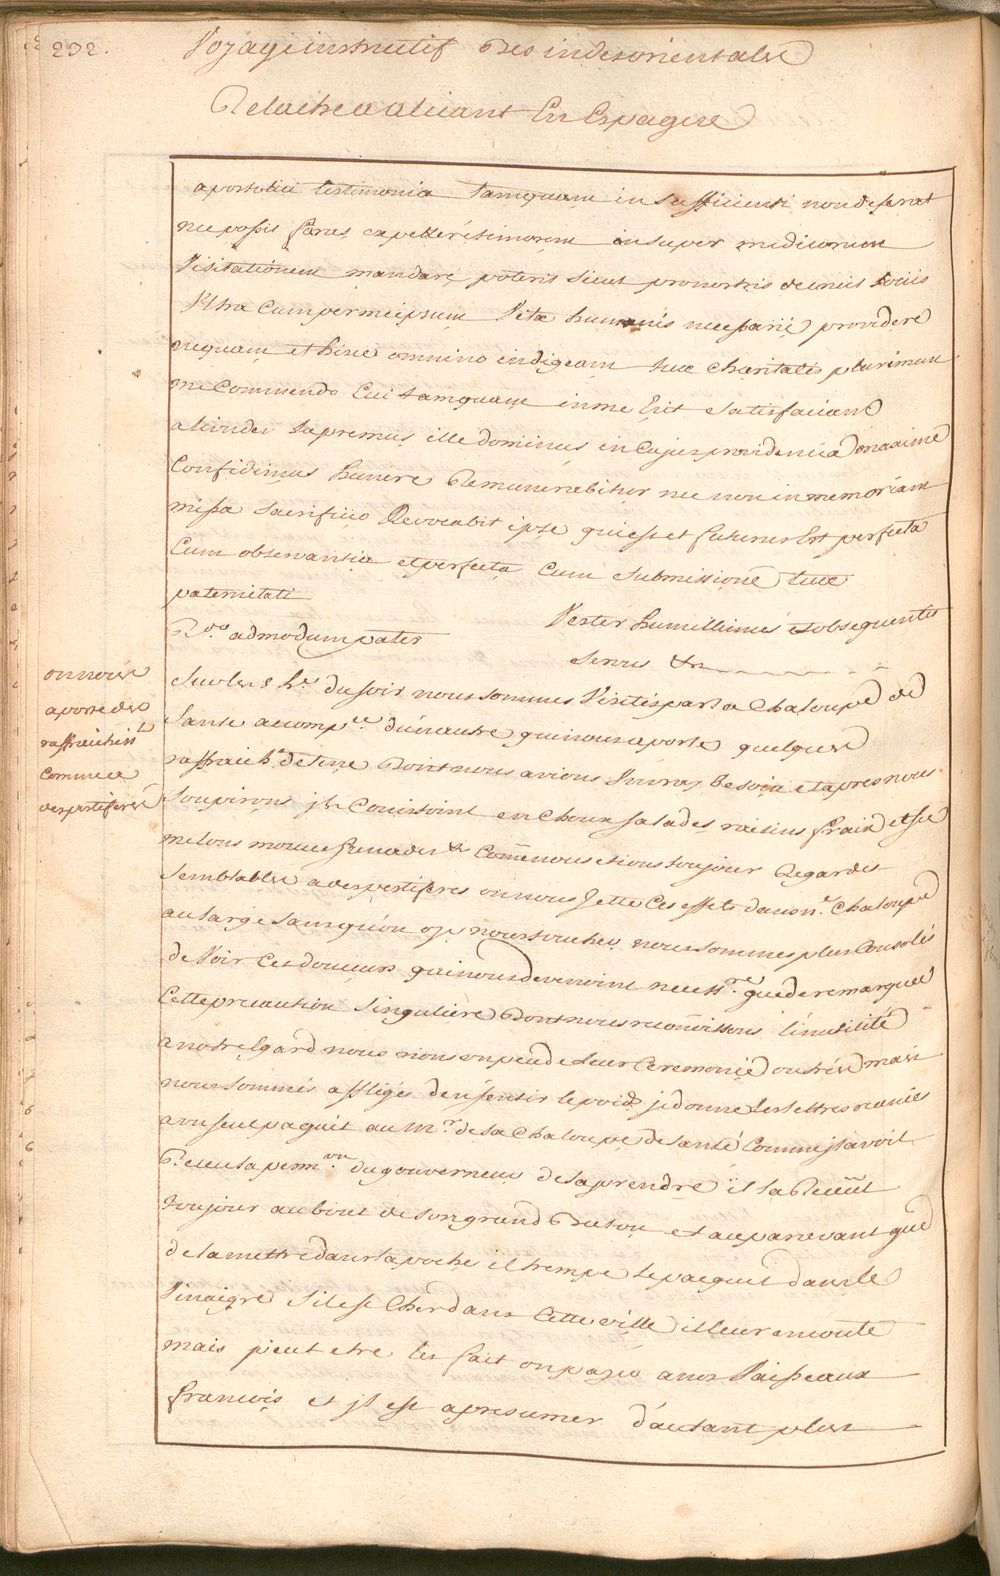 232.
Voyage instructif Des indes orientales
Relache a alicant En Espagne
apostolici testimonia tamquam insufficienti non deserat
nec possis fores expellere timorem insuper medicorum
Visitationem mandare poteris sicut pro nostris decrevit sociis
Ultra Cum per meipsum Vitæ humanis necessarie providere
nequam et hinc omnino indigeam tuæ Charitatis plurimum
me Commendo Cui tamquam in me Erit satisfaciam
aliunde supremus ille dominus in Cujus providentia maxime
Confidimus hunere Remunerabitur nec non in memoriam
missæ sacrificio Revocabit ipse qui est et futurus Est perfecta
Cum observantia et perfecta Cum submissione tuæ
paternitati
Rdo admodum pater
Vester humillimus et obsequentis
servus &c
on nous
aporte des
raffraichisst
comme a
des pestiferés
Sur les 8 hres du soir nous sommes Visités par la Chaloupe de
Santé accompée d'une autre qui nous aporte quelques
raffraichts de terre Dont nous avions Un vray besoin et apres nous
soupirons jls Consistoint en Choux salades raisins frais et sec
melons grenades &c Comme nous etions toujour Regardés
semblables a des pestiferes on nous Jette Ces effets dans nre Chaloupe
au large sans qu'on ose nous toucher, nous sommes plus Consolés
de Voir Ces douceurs qui nous devenoint necessres que de remarquer
Cette precaution Singulière Dont nous reconnoissons l'inutilité
a notre Egard nous rions un peu de leur Ceremonie outrée mais
nous sommes affligés d'en sentir le poids, je donne les lettres reunies
a un seul paquet au Mre de la Chaloupe de santé Comme jl avoit
Receu la permon du gouverneur de la prendre il la Receut
toujour au bout de son grand Baton et auparavant que
de la mettre dans la poche il trempe le pacquet dans le
Vinaigre s'il est Cher dans Cette ville il leur en coute
mais peut etre les fait on payer a nos Vaisseaux
francois et jl est a presumer d'autant plus